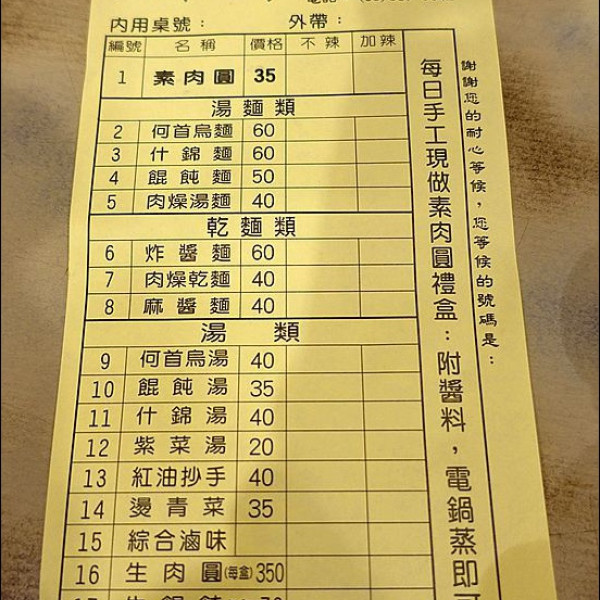 內用桌號： 外帶：
編號 名稱 價格 不辣 加辣
1 素肉圓 35
湯麵類
2 何首烏麵 60
3 什錦麵 60
4 餛飩麵 50
5 肉燥湯麵 40
乾麵類
6 炸醬麵 60
7 肉燥乾麵 40
8 麻醬麵 40
湯類
9 何首烏湯 40
10 餛飩湯 35
11 什錦湯 40
12 紫菜湯 20
13 紅油抄手 40
14 燙青菜 35
15 綜合滷味
16 生肉圓(每盒) 350
每日手工現做素肉圓禮盒：附醬料，電鍋蒸即可
謝謝您的耐心等候，您等候的號碼是：